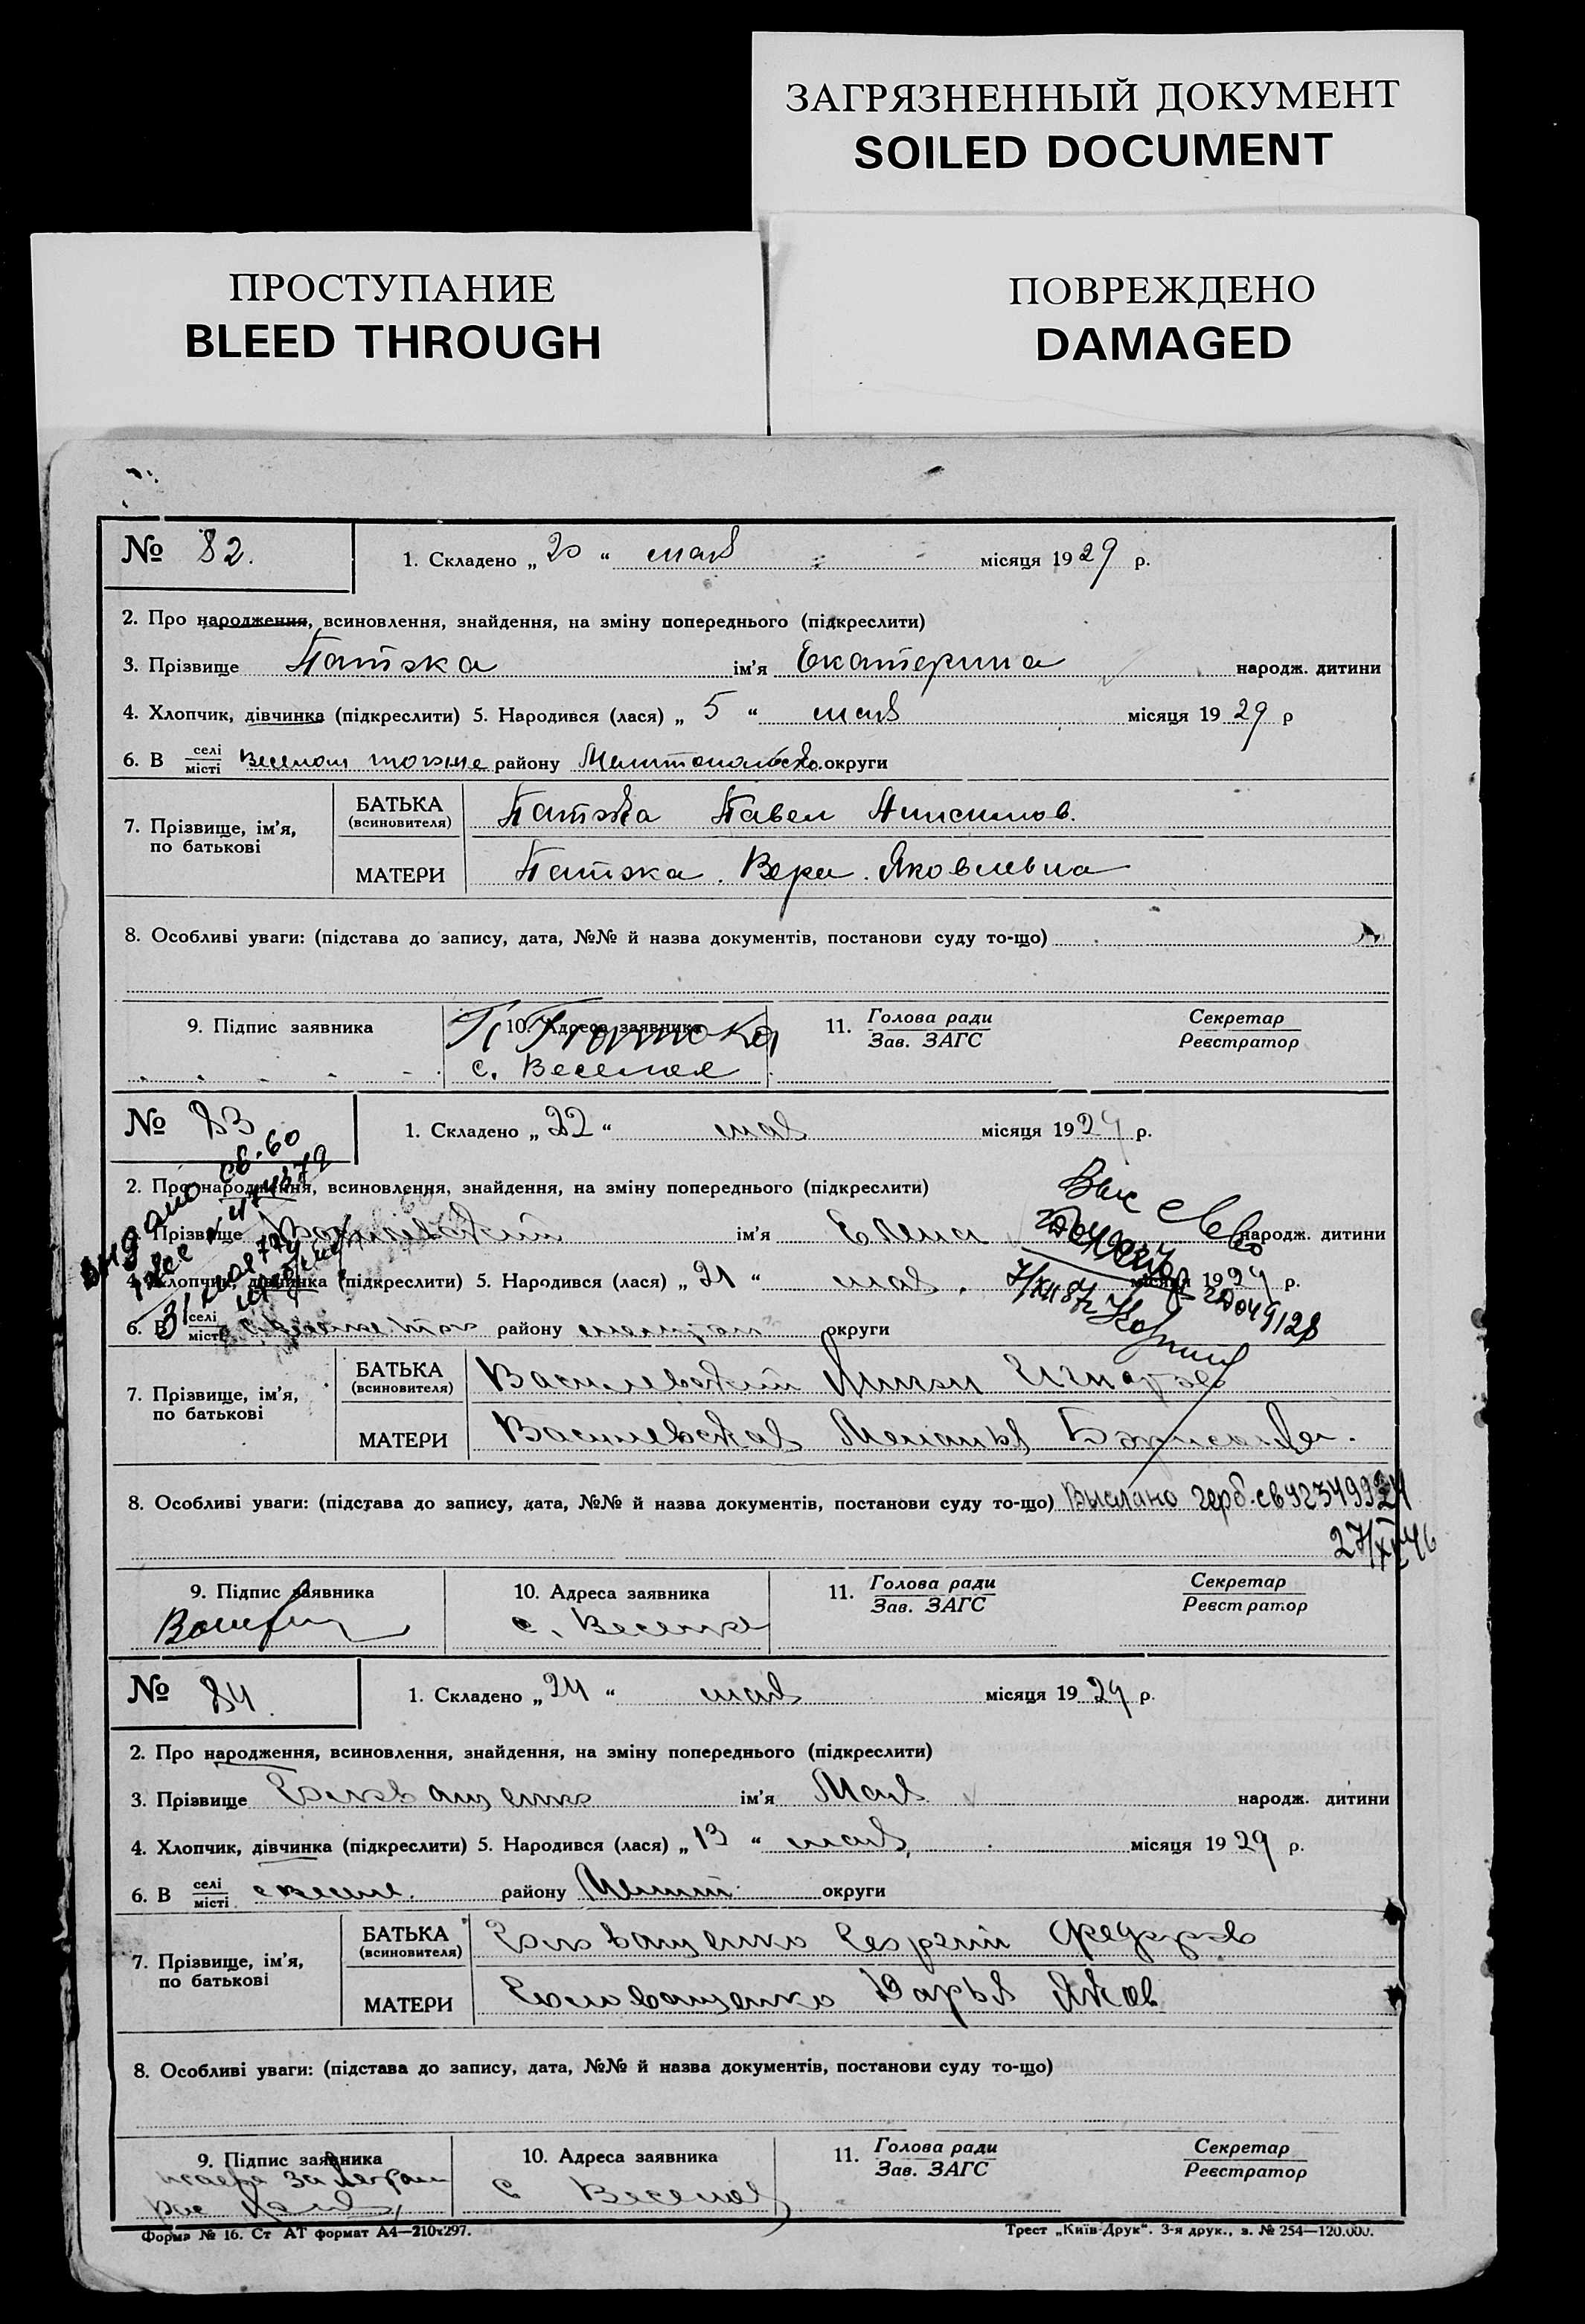 ЗАГРЯЗНЕННЫЙ ДОКУМЕНТ
SOILED DOCUMENT
ПРОСТУПАНИЕ
BLEED THROUGH
ПОВРЕЖДЕНО
DAMAGED
№ 82. 1. Складено „20“ мая місяця 1929 р.
2. Про народження, всиновлення, знайдення, на зміну попереднього (підкреслити)
3. Прізвище Патока ім'я Екатерина народж. дитини
4. Хлопчик, дівчинка (підкреслити) 5. Народився (лася) „5“ мая місяця 1929 р
6. В селі/місті Веселом району округи
7. Прізвище, ім'я, по батькові
БАТЬКА (всиновителя) Патока Павел Анисимов.
МАТЕРИ Патока. Вера. Яковлевна
8. Особливі уваги: (підстава до запису, дата, №№ й назва документів, постанови суду то-що)
9. Підпис заявника 10. Адреса заявника 11. Голова ради/Зав. ЗАГС Секретар/Реєстратор
П Патока
с. Веселое
№ 83 1. Складено „22“ мая місяця 1929 р.
2. Про народження, всиновлення, знайдення, на зміну попереднього (підкреслити)
3. Прізвище ім'я Елена народж. дитини
4. Хлопчик, дівчинка (підкреслити) 5. Народився (лася) „21“ мая. місяця 1929 р.
6. В селі/місті району округи
Видано св-60
7/XII 87г
27049128
7. Прізвище, ім'я, по батькові
БАТЬКА (всиновителя) Василевский
МАТЕРИ Василевская Мелания
8. Особливі уваги: (підстава до запису, дата, №№ й назва документів, постанови суду то-що) Вислано герб. св
9. Підпис заявника 10. Адреса заявника 11. Голова ради/Зав. ЗАГС Секретар/Реєстратор
с. Веселое
№ 84. 1. Складено „24“ мая місяця 1929 р.
2. Про народження, всиновлення, знайдення, на зміну попереднього (підкреслити)
3. Прізвище ім'я Мая народж. дитини
4. Хлопчик, дівчинка (підкреслити) 5. Народився (лася) „13“ мая, місяця 1929 р.
6. В селі/місті с Весел. району Мелит. округи
7. Прізвище, ім'я, по батькові
БАТЬКА (всиновителя) Головащенко Георгий Федоров
МАТЕРИ Головащенко Дарья Яков
8. Особливі уваги: (підстава до запису, дата, №№ й назва документів, постанови суду то-що)
9. Підпис заявника 10. Адреса заявника 11. Голова ради/Зав. ЗАГС Секретар/Реєстратор
с Веселое
Форма № 16. Ст АТ формат А4—210х297. Трест „Київ-Друк“. 3-я друк., з. № 254—120.000.